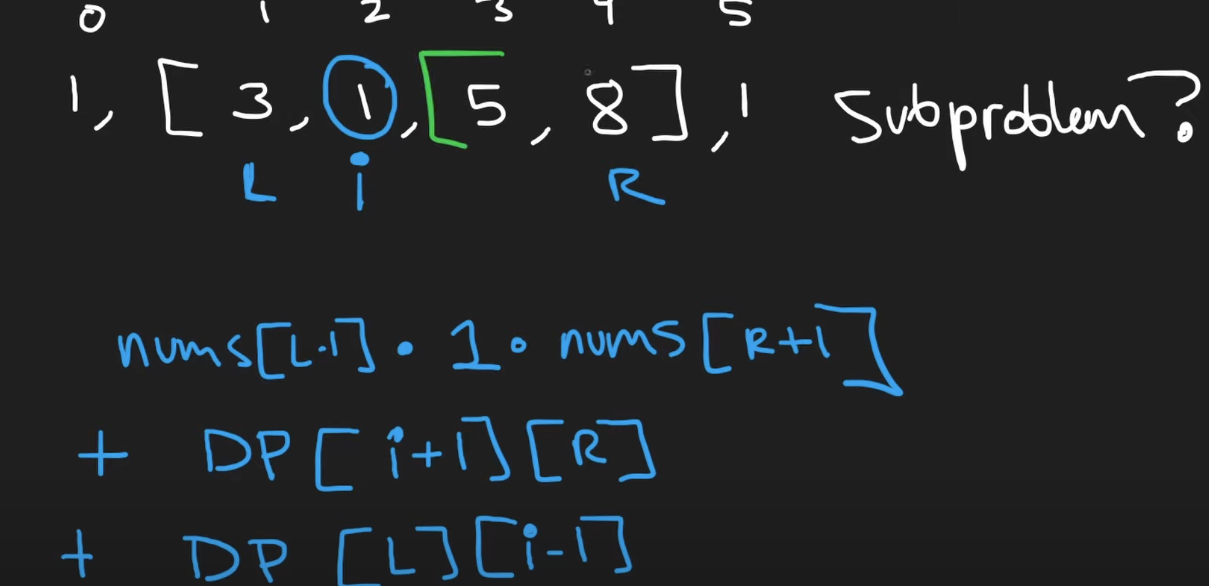 0 1 2 3 4 5
1, [ 3, 1, [ 5, 8 ], 1 Subproblem?
L i R
nums[L-1] • 1 • nums[R+1]
+ DP[i+1][R]
+ DP[L][i-1]